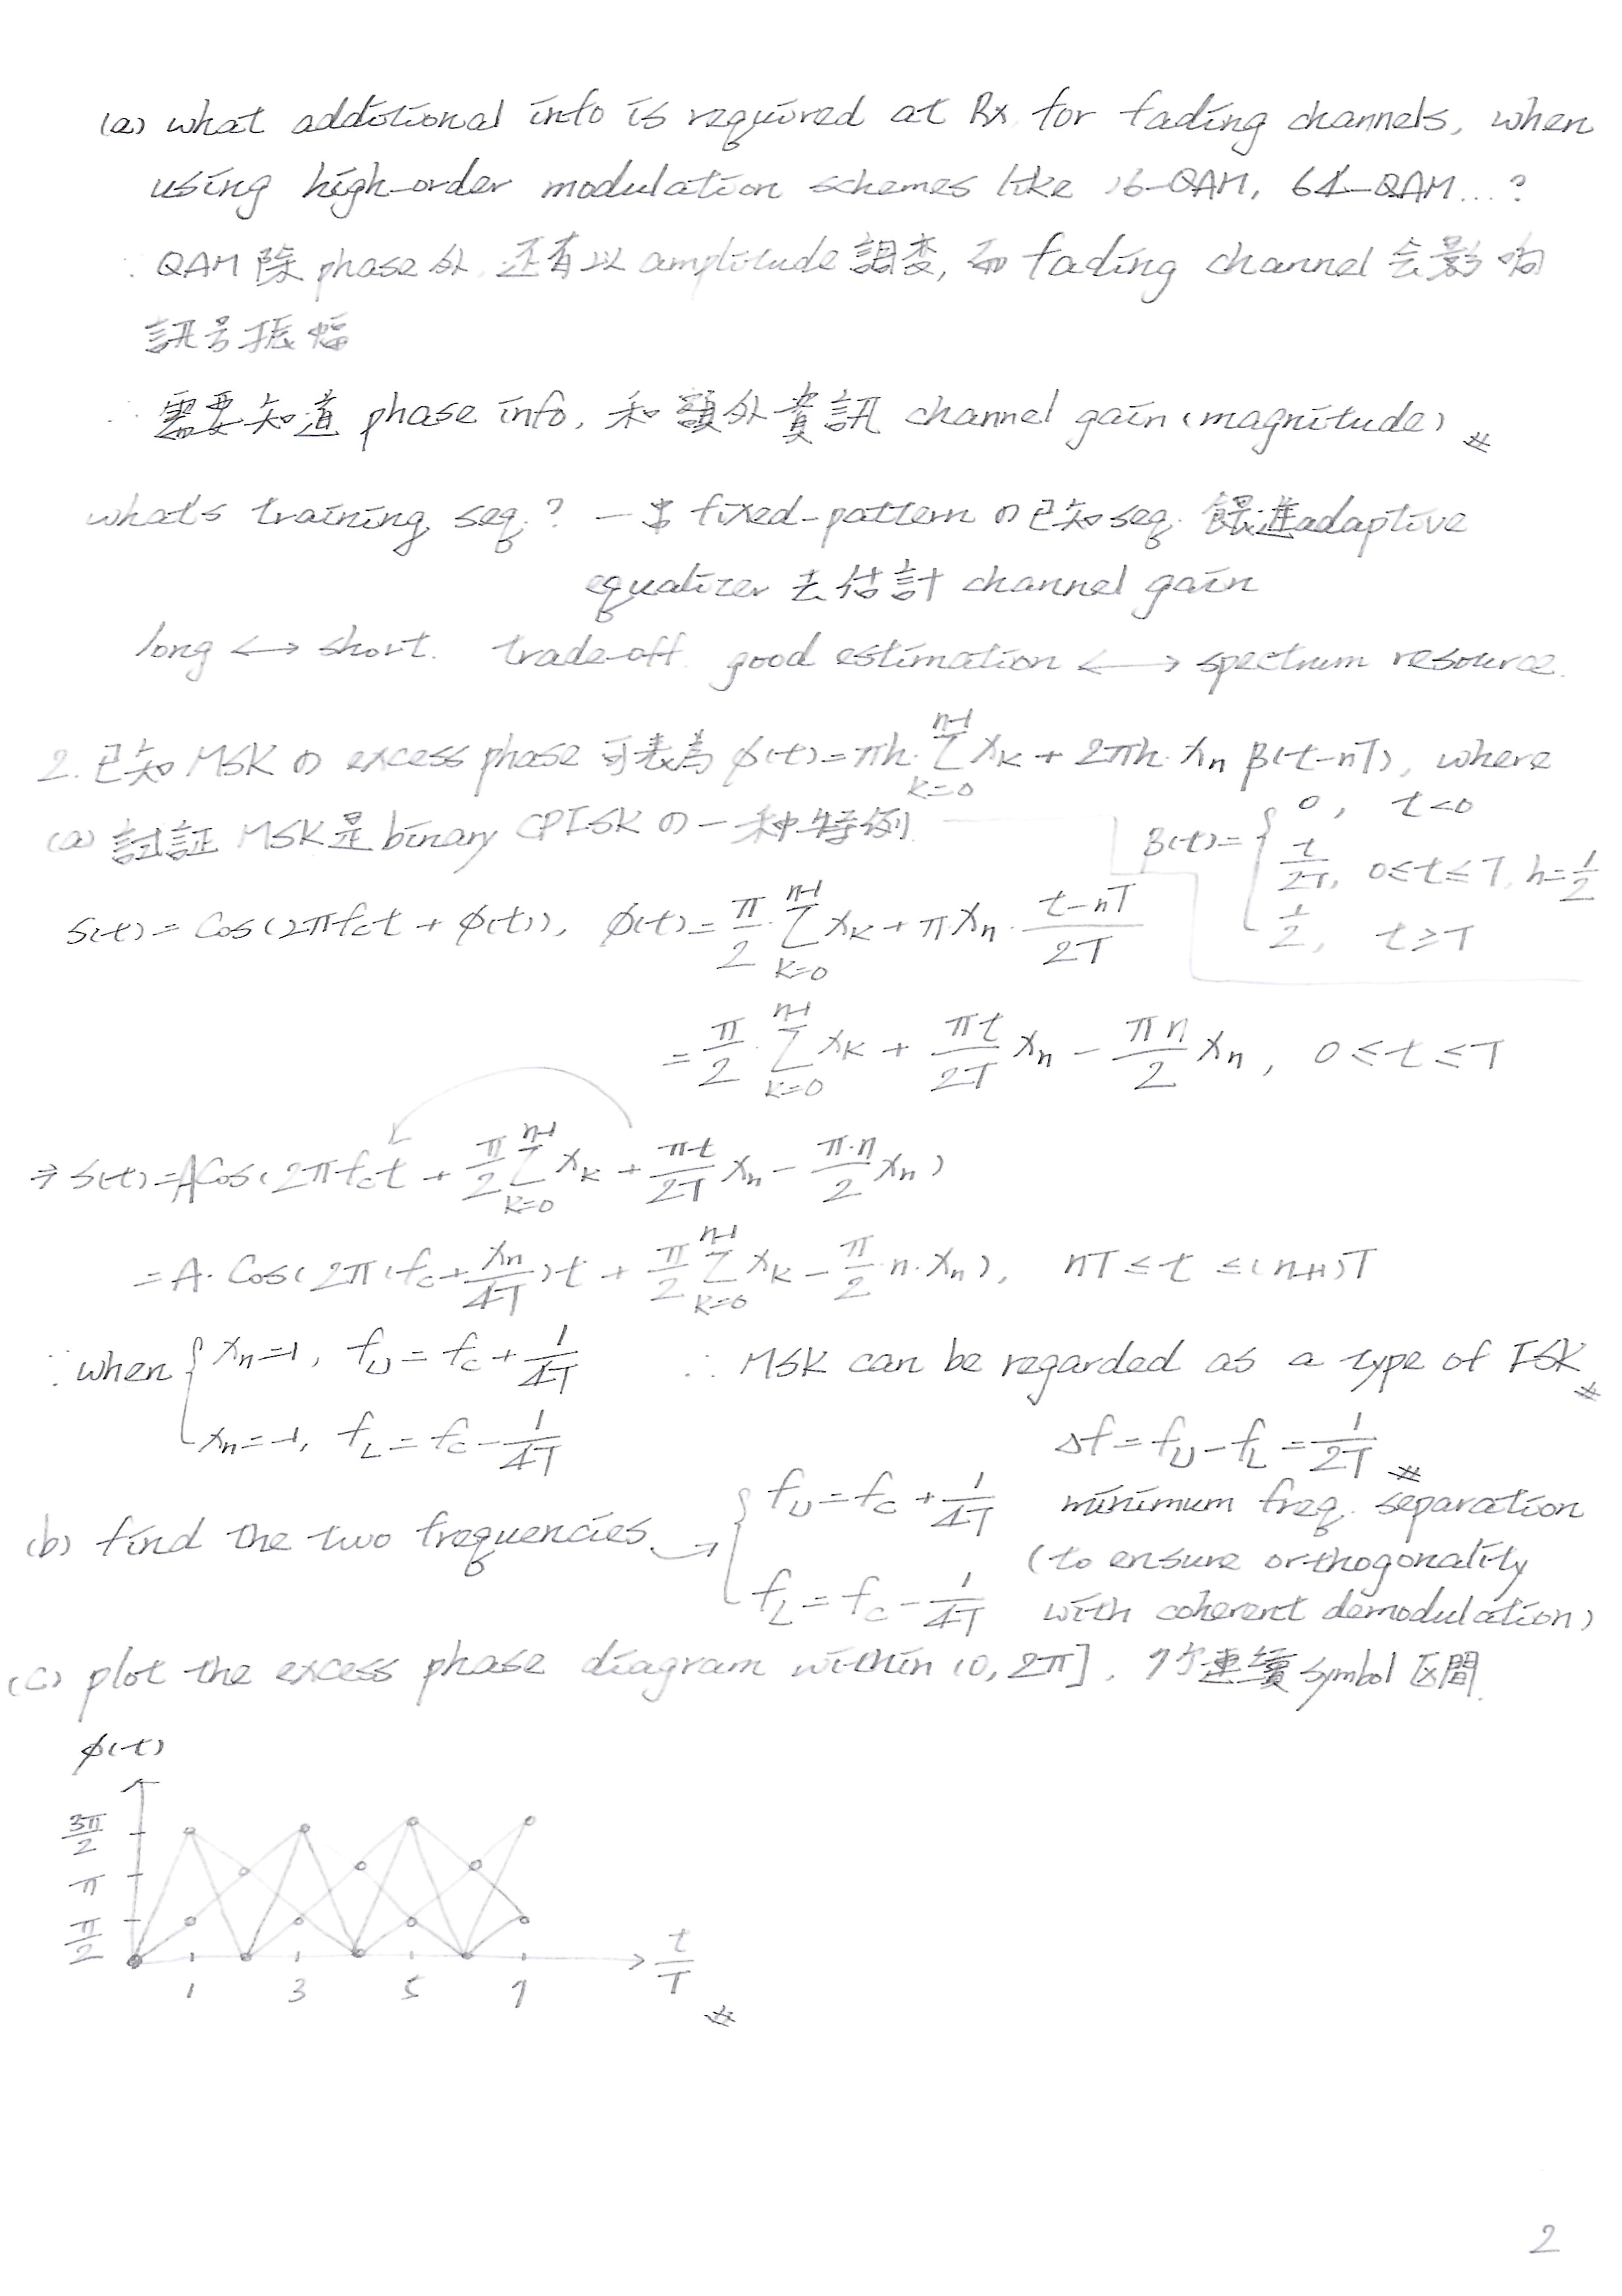 (a) what additional info is required at Rx for fading channels, when
using high-order modulation schemes like 16-QAM, 64-QAM...?
∵ QAM 除 phase 外, 还有以 amplitude 調変, 而 fading channel 会影响
訊号振幅
∴ 需要知道 phase info, 和額外資訊 channel gain (magnitude) #
what's training seq.? 一串 fixed-pattern の已知 seq. 餵進 adaptive
equalizer 去估計 channel gain
long ↔ short. trade-off good estimation ↔ spectrum resource.
2. 已知 MSK の excess phase 可表為 φ(t)=πh·Σ_{k=0}^{n-1} x_k + 2πh·x_n β(t-nT), where
β(t)= { 0, t<0
t/2T, 0≤t≤T, h=1/2
1/2, t≥T
(a) 試証 MSK 是 binary CPFSK の一种特例
s(t)=Cos(2πf_ct + φ(t)), φ(t)= π/2·Σ_{k=0}^{n-1} x_k + πx_n·(t-nT)/2T
= π/2·Σ_{k=0}^{n-1} x_k + πt/2T x_n - πn/2 x_n, 0≤t≤T
⇒ s(t)=ACos(2πf_ct + π/2 Σ_{k=0}^{n-1} x_k + πt/2T x_n - π·n/2 x_n)
=A·Cos(2π(f_c+x_n/4T)t + π/2 Σ_{k=0}^{n-1} x_k - π/2 n·x_n), nT≤t≤(n+1)T
∵ when { x_n=1, f_U=f_c+1/4T ∴ MSK can be regarded as a type of FSK #
x_n=-1, f_L=f_c-1/4T Δf=f_U-f_L=1/2T #
(b) find the two frequencies → { f_U=f_c+1/4T
f_L=f_c-1/4T
minimum freq. separation
(to ensure orthogonality
with coherent demodulation)
(c) plot the excess phase diagram within (0, 2π], 7个連續 symbol 区間.
φ(t)
3π/2
π
π/2
1 3 5 7 t/T
#
2